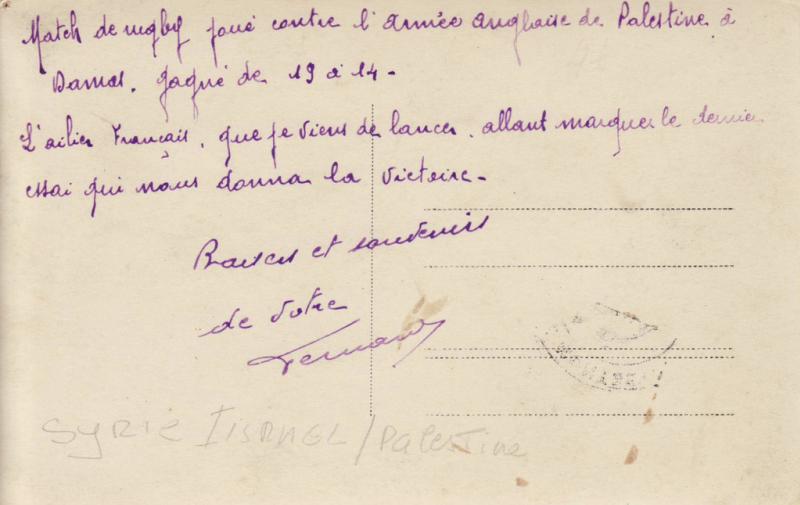 Match de rugby joué contre l'armée anglaise de Palestine à
Damas. gagné de 19 à 14-
L'ailier Français, que je viens de lancer, allant marquer le dernier
essai qui nous donna la victoire-
Baisers et souvenirs
de votre
Fernand
SYRIE ISRAEL/Palestine